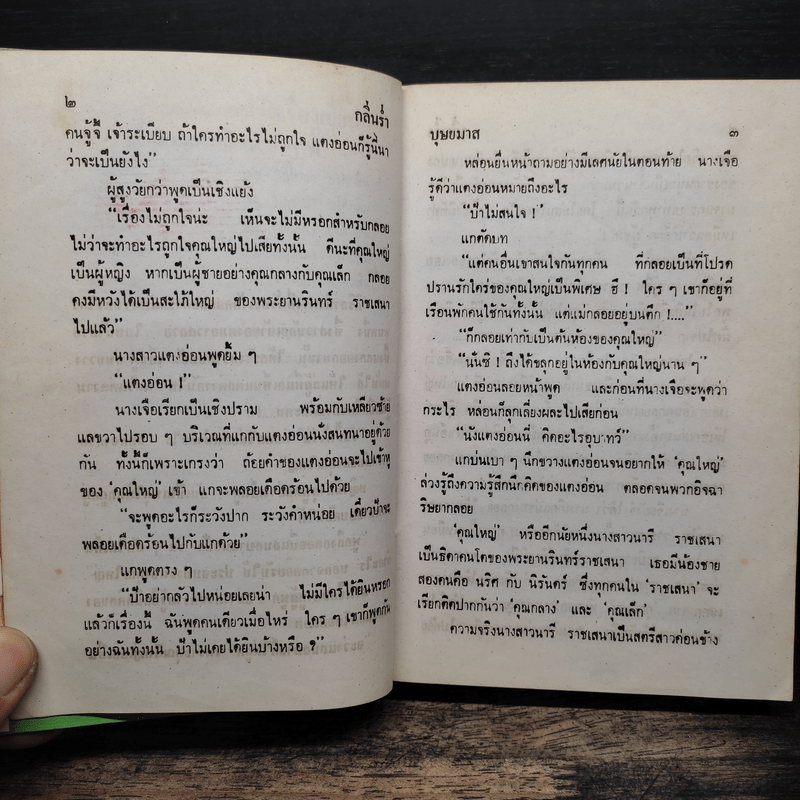 ๒
กลิ่นร่ำ
คนจู้จี้ เจ้าระเบียบ ถ้าใครทำอะไรไม่ถูกใจ แตงอ่อนก็รู้นี่นา
ว่าจะเป็นยังไง”
ผู้สูงวัยกว่าพูดเป็นเชิงแย้ง
“เรื่องไม่ถูกใจน่ะ เห็นจะไม่มีหรอกสำหรับกลอย
ไม่ว่าจะทำอะไรถูกใจคุณใหญ่ไปเสียทั้งนั้น ดีนะที่คุณใหญ่
เป็นผู้หญิง หากเป็นผู้ชายอย่างคุณกลางกับคุณเล็ก กลอย
คงมีหวังได้เป็นสะใภ้ใหญ่ ของพระยานรินทร์ ราชเสนา
ไปแล้ว”
นางสาวแตงอ่อนพูดยิ้ม ๆ
“แตงอ่อน !”
นางเจือเรียกเป็นเชิงปราม พร้อมกับเหลียวซ้าย
แลขวาไปรอบ ๆ บริเวณที่แกกับแตงอ่อนนั่งสนทนาอยู่ด้วย
กัน ทั้งนี้ก็เพราะเกรงว่า ถ้อยคำของแตงอ่อนจะไปเข้าหู
ของ ‘คุณใหญ่’ เข้า แกจะพลอยเดือดร้อนไปด้วย
“จะพูดอะไรก็ระวังปาก ระวังคำหน่อย เดี๋ยวป้าจะ
พลอยเดือดร้อนไปกับแกด้วย”
แกพูดตรง ๆ
“ป้าอย่ากลัวไปหน่อยเลยน่า ไม่มีใครได้ยินหรอก
แล้วก็เรื่องนี้ ฉันพูดคนเดียวเมื่อไหร่ ใคร ๆ เขาก็พูดกัน
อย่างฉันทั้งนั้น ป้าไม่เคยได้ยินบ้างหรือ ?”
บุษยมาส
๓
หล่อนยื่นหน้าถามอย่างมีเลศนัยในตอนท้าย นางเจือ
รู้ดีว่าแตงอ่อนหมายถึงอะไร
“ป้าไม่สนใจ !”
แกตัดบท
“แต่คนอื่นเขาสนใจกันทุกคน ที่กลอยเป็นที่โปรด
ปรานรักใคร่ของคุณใหญ่เป็นพิเศษ ฮึ ! ใคร ๆ เขาก็อยู่ที่
เรือนพักคนใช้กันทั้งนั้น แต่แม่กลอยอยู่บนตึก !....”
“ก็กลอยเท่ากับเป็นต้นห้องของคุณใหญ่”
“นั่นซิ ! ถึงได้ขลุกอยู่ในห้องกับคุณใหญ่นาน ๆ”
แตงอ่อนลอยหน้าพูด และก่อนที่นางเจือจะพูดว่า
กระไร หล่อนก็ลุกเลี่ยงผละไปเสียก่อน
“นังแตงอ่อนนี่ คิดอะไรอุบาทว์”
แกบ่นเบา ๆ นึกขวางแตงอ่อนจนอยากให้ ‘คุณใหญ่’
ล่วงรู้ถึงความรู้สึกนึกคิดของแตงอ่อน ตลอดจนพวกอิจฉา
ริษยากลอย
‘คุณใหญ่’ หรืออีกนัยหนึ่งนางสาวนารี ราชเสนา
เป็นธิดาคนโตของพระยานรินทร์ราชเสนา เธอมีน้องชาย
สองคนคือ นริศ กับ นิรันดร์ ซึ่งทุกคนใน ‘ราชเสนา’ จะ
เรียกติดปากกันว่า ‘คุณกลาง’ และ ‘คุณเล็ก’
ความจริงนางสาวนารี ราชเสนาเป็นสตรีสาวค่อนข้าง